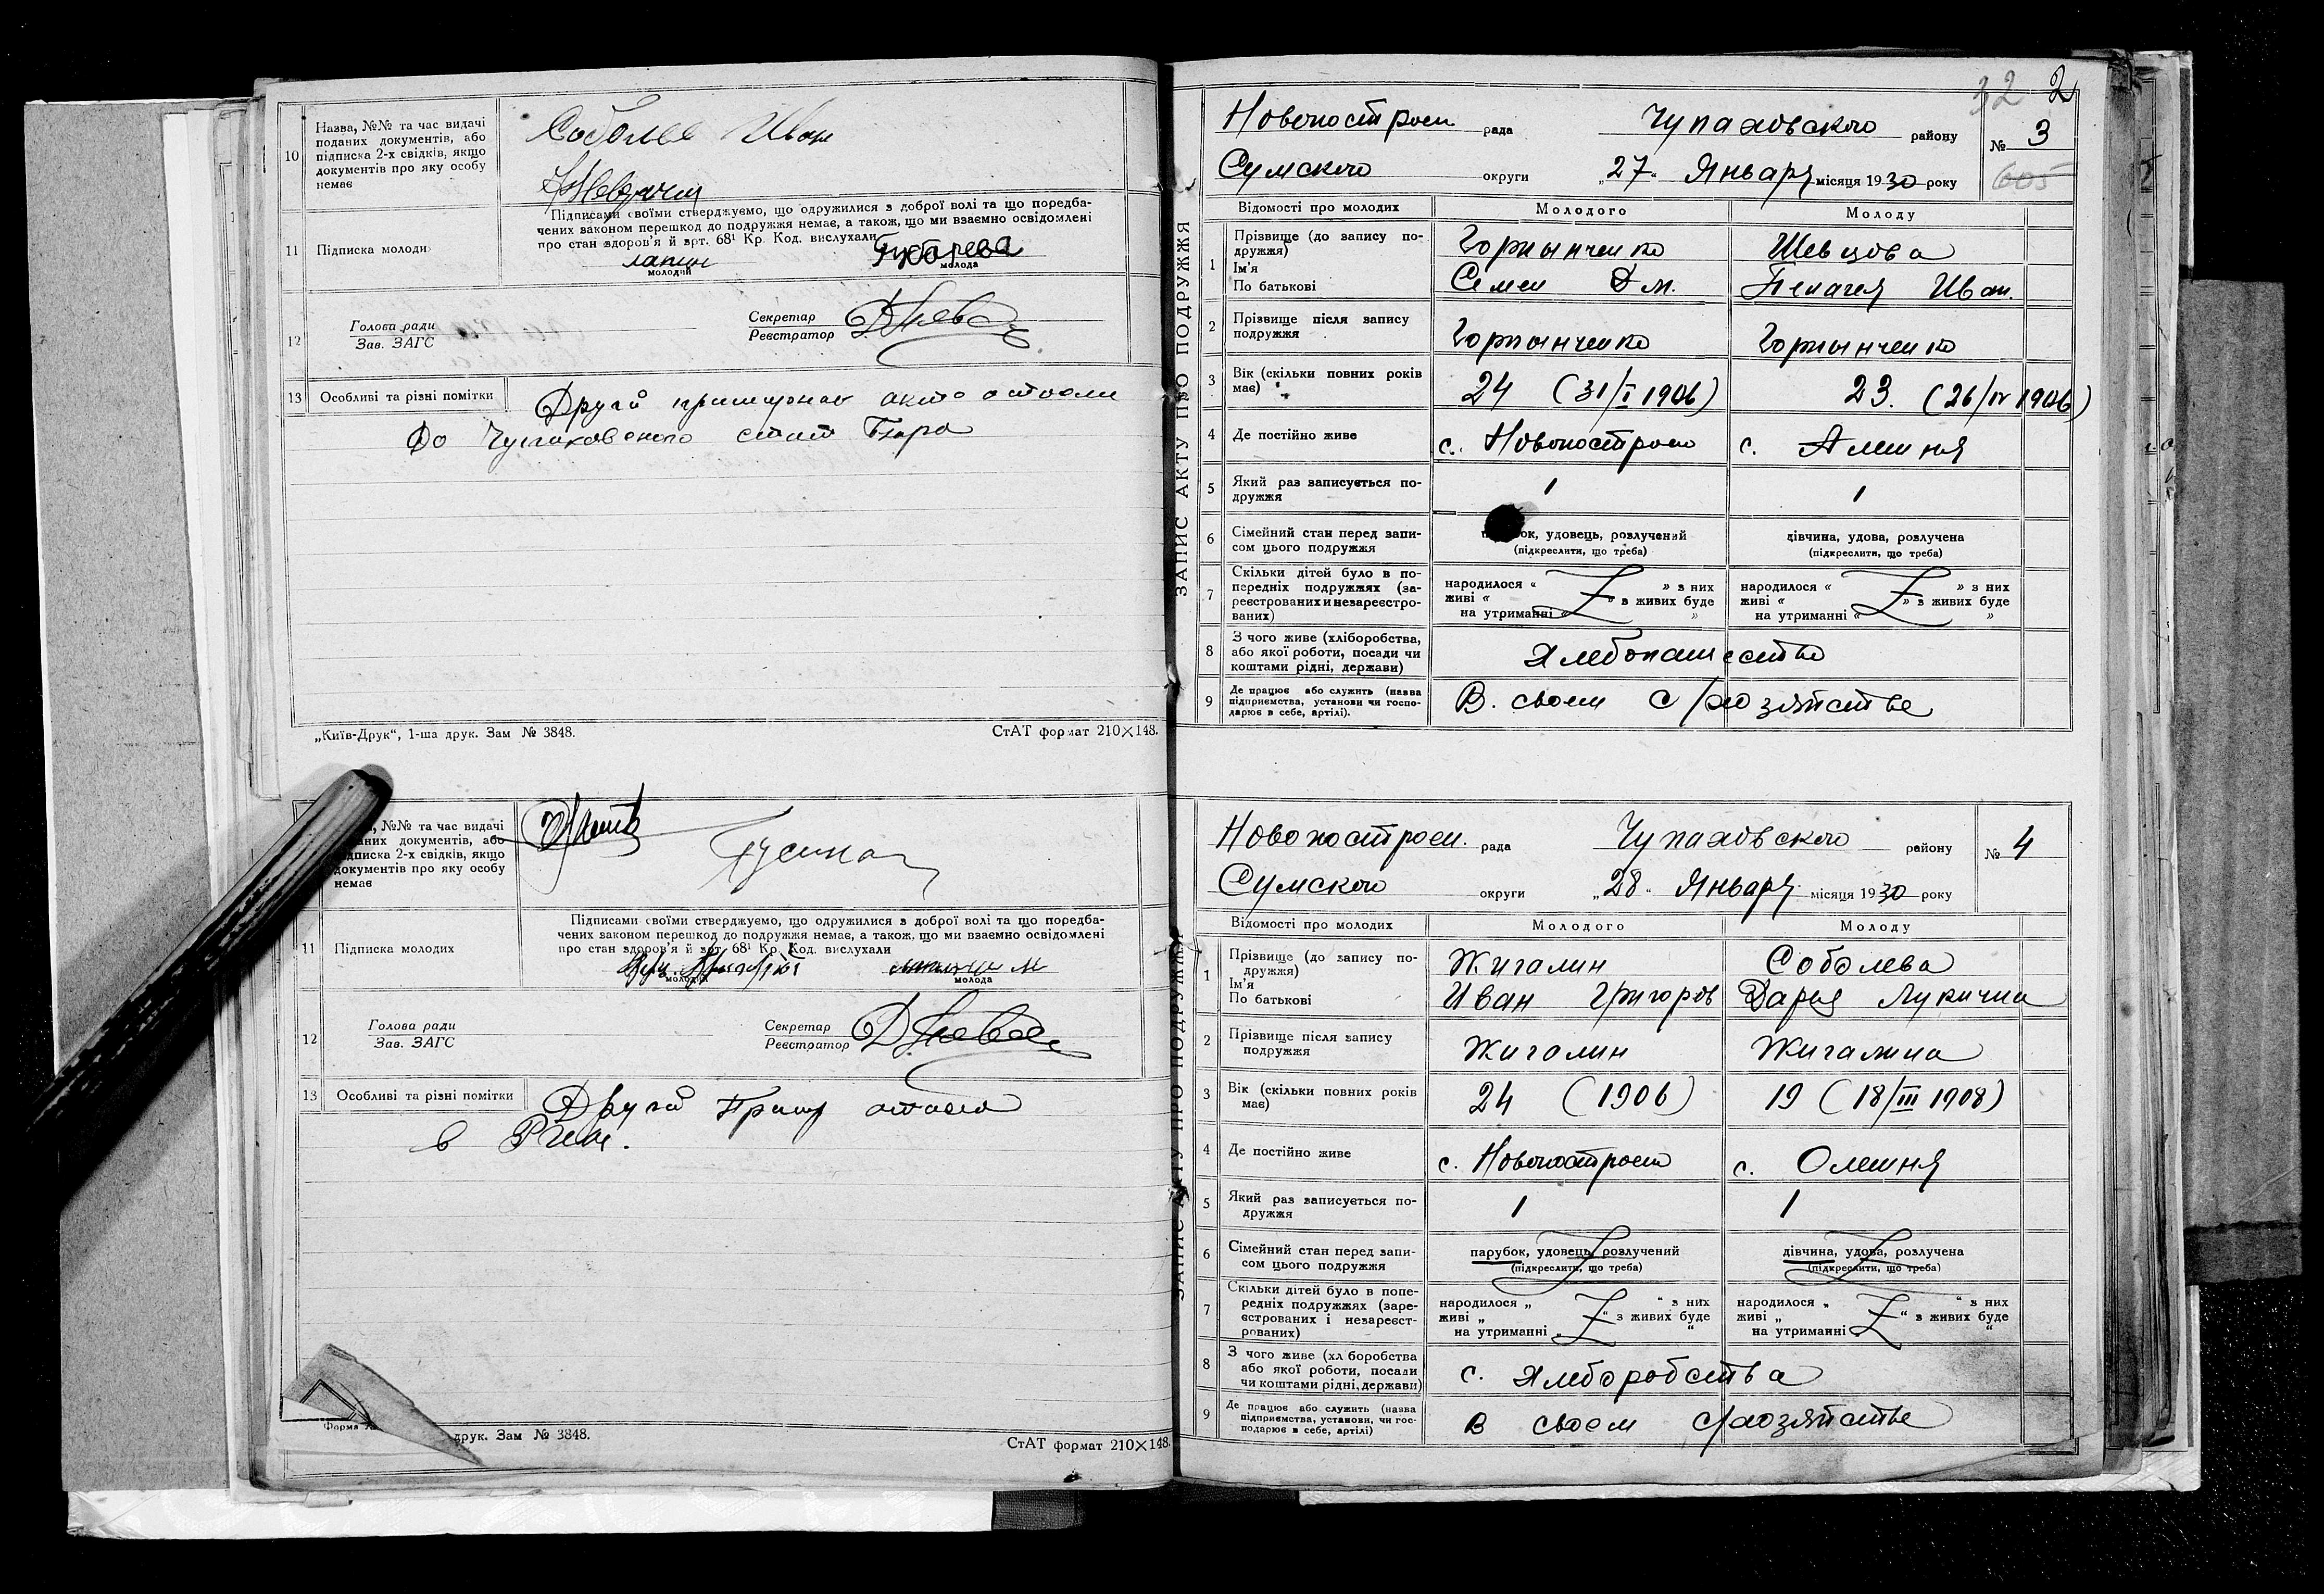 10
Назва, №№ та час видачі
поданих документів, або
підписка 2-х свідків, якщо
документів про яку особу
немає
Соболев Иван
11
Підписка молоди
Підписами своїми стверджуємо, що одружилися з доброї волі та що поредба-
чених законом перешкод до подружжя немає, а також, що ми взаємно освідомлені
про стан здоров'я й арт. 68¹ Кр. Код. вислухали
лапин
Губарева
молодий
молода
12
Голова ради
Зав. ЗАГС
Секретар
Реєстратор
13
Особливі та різні помітки
Другий
До Чупаховского стат Бюро
„Київ-Друк“, 1-ша друк. Зам № 3848.
СтАТ формат 210×148.
№№ та час видачі
документів, або
підписка 2-х свідків, якщо
документів про яку особу
немає
11
Підписка молодих
Підписами своїми стверджуємо, що одружилися з доброї волі та що поредба-
чених законом перешкод до подружжя немає, а також, що ми взаємно освідомлені
про стан здоров'я й арт. 68¹ Кр. Код. вислухали
молодий
молода
12
Голова ради
Зав. ЗАГС
Секретар
Реєстратор
13
Особливі та різні помітки
Другий
в
Форма
друк. Зам № 3848.
СтАТ формат 210×148.
32 2
ЗАПИС АКТУ ПРО ПОДРУЖЖЯ
Новопостроен. рада Чупаховского району
№ 3
Сумского округи „27“ Января місяця 1930 року
605
Відомості про молодих
Молодого
Молоду
1
Прізвище (до запису по-
дружжя)
Ім'я
По батькові
Горпынченко
Семен Дм.
Шевцова
Пелагея Иван.
2
Прізвище після запису
подружжя
Горпынченко
Горпынченко
3
Вік (скільки повних років
має)
24 (31/I 1906)
23. (26/IV 1906)
4
Де постійно живе
с. Новопостроен
с. Алешня
5
Який раз записується по-
дружжя
1
1
6
Сімейний стан перед запи-
сом цього подружжя
ок, удовець, розлучений
(підкреслити, що треба)
дівчина, удова, розлучена
(підкреслити, що треба)
7
Скільки дітей було в по-
передніх подружжях (за-
реєстрованих и незареєстро-
ваних)
народилося « » з них
живі « » з живих буде
на утриманні « »
народилося « » з них
живі « » з живих буде
на утриманні « »
8
З чого живе (хліборобства,
або якої роботи, посади чи
коштами рідні, держави)
Хлебопашество
9
Де працює або служить (назва
підприємства, установи чи госпо-
дарює в себе, артілі).
В своем с/хозяйстве
ЗАПИС АКТУ ПРО ПОДРУЖЖЯ
Новопостроен. рада Чупаховского району
№ 4
Сумского округи „28“ Января місяця 1930 року
Відомості про молодих
Молодого
Молоду
1
Прізвище (до запису по-
дружжя)
Ім'я
По батькові
Жигалин
Иван Григоров
Соболева
Дарья Лукична
2
Прізвище після запису
подружжя
Жигалин
Жигалина
3
Вік (скільки повних років
має)
24 (1906)
19 (18/III 1908)
4
Де постійно живе
с. Новопостроен
с. Олешня
5
Який раз записується по-
дружжя
1
1
6
Сімейний стан перед запи-
сом цього подружжя
парубок, удовець, розлучений
(підкреслити, що треба)
дівчина, удова, розлучена
(підкреслити, що треба)
7
Скільки дітей було в попе-
редніх подружжях (заре-
єстрованих і незареєст-
рованих)
народилося „ “ з них
живі „ “ з живих буде
на утриманні „ “
народилося „ “ з них
живі „ “ з живих буде
на утриманні „ “
8
З чого живе (хл боробства
або якої роботи, посади
чи коштами рідні, держави)
с. хлеборобства
9
Де працює або служить (назва
підприємства, установи, чи гос-
подарює в себе, артілі)
в своем с/хозяйстве